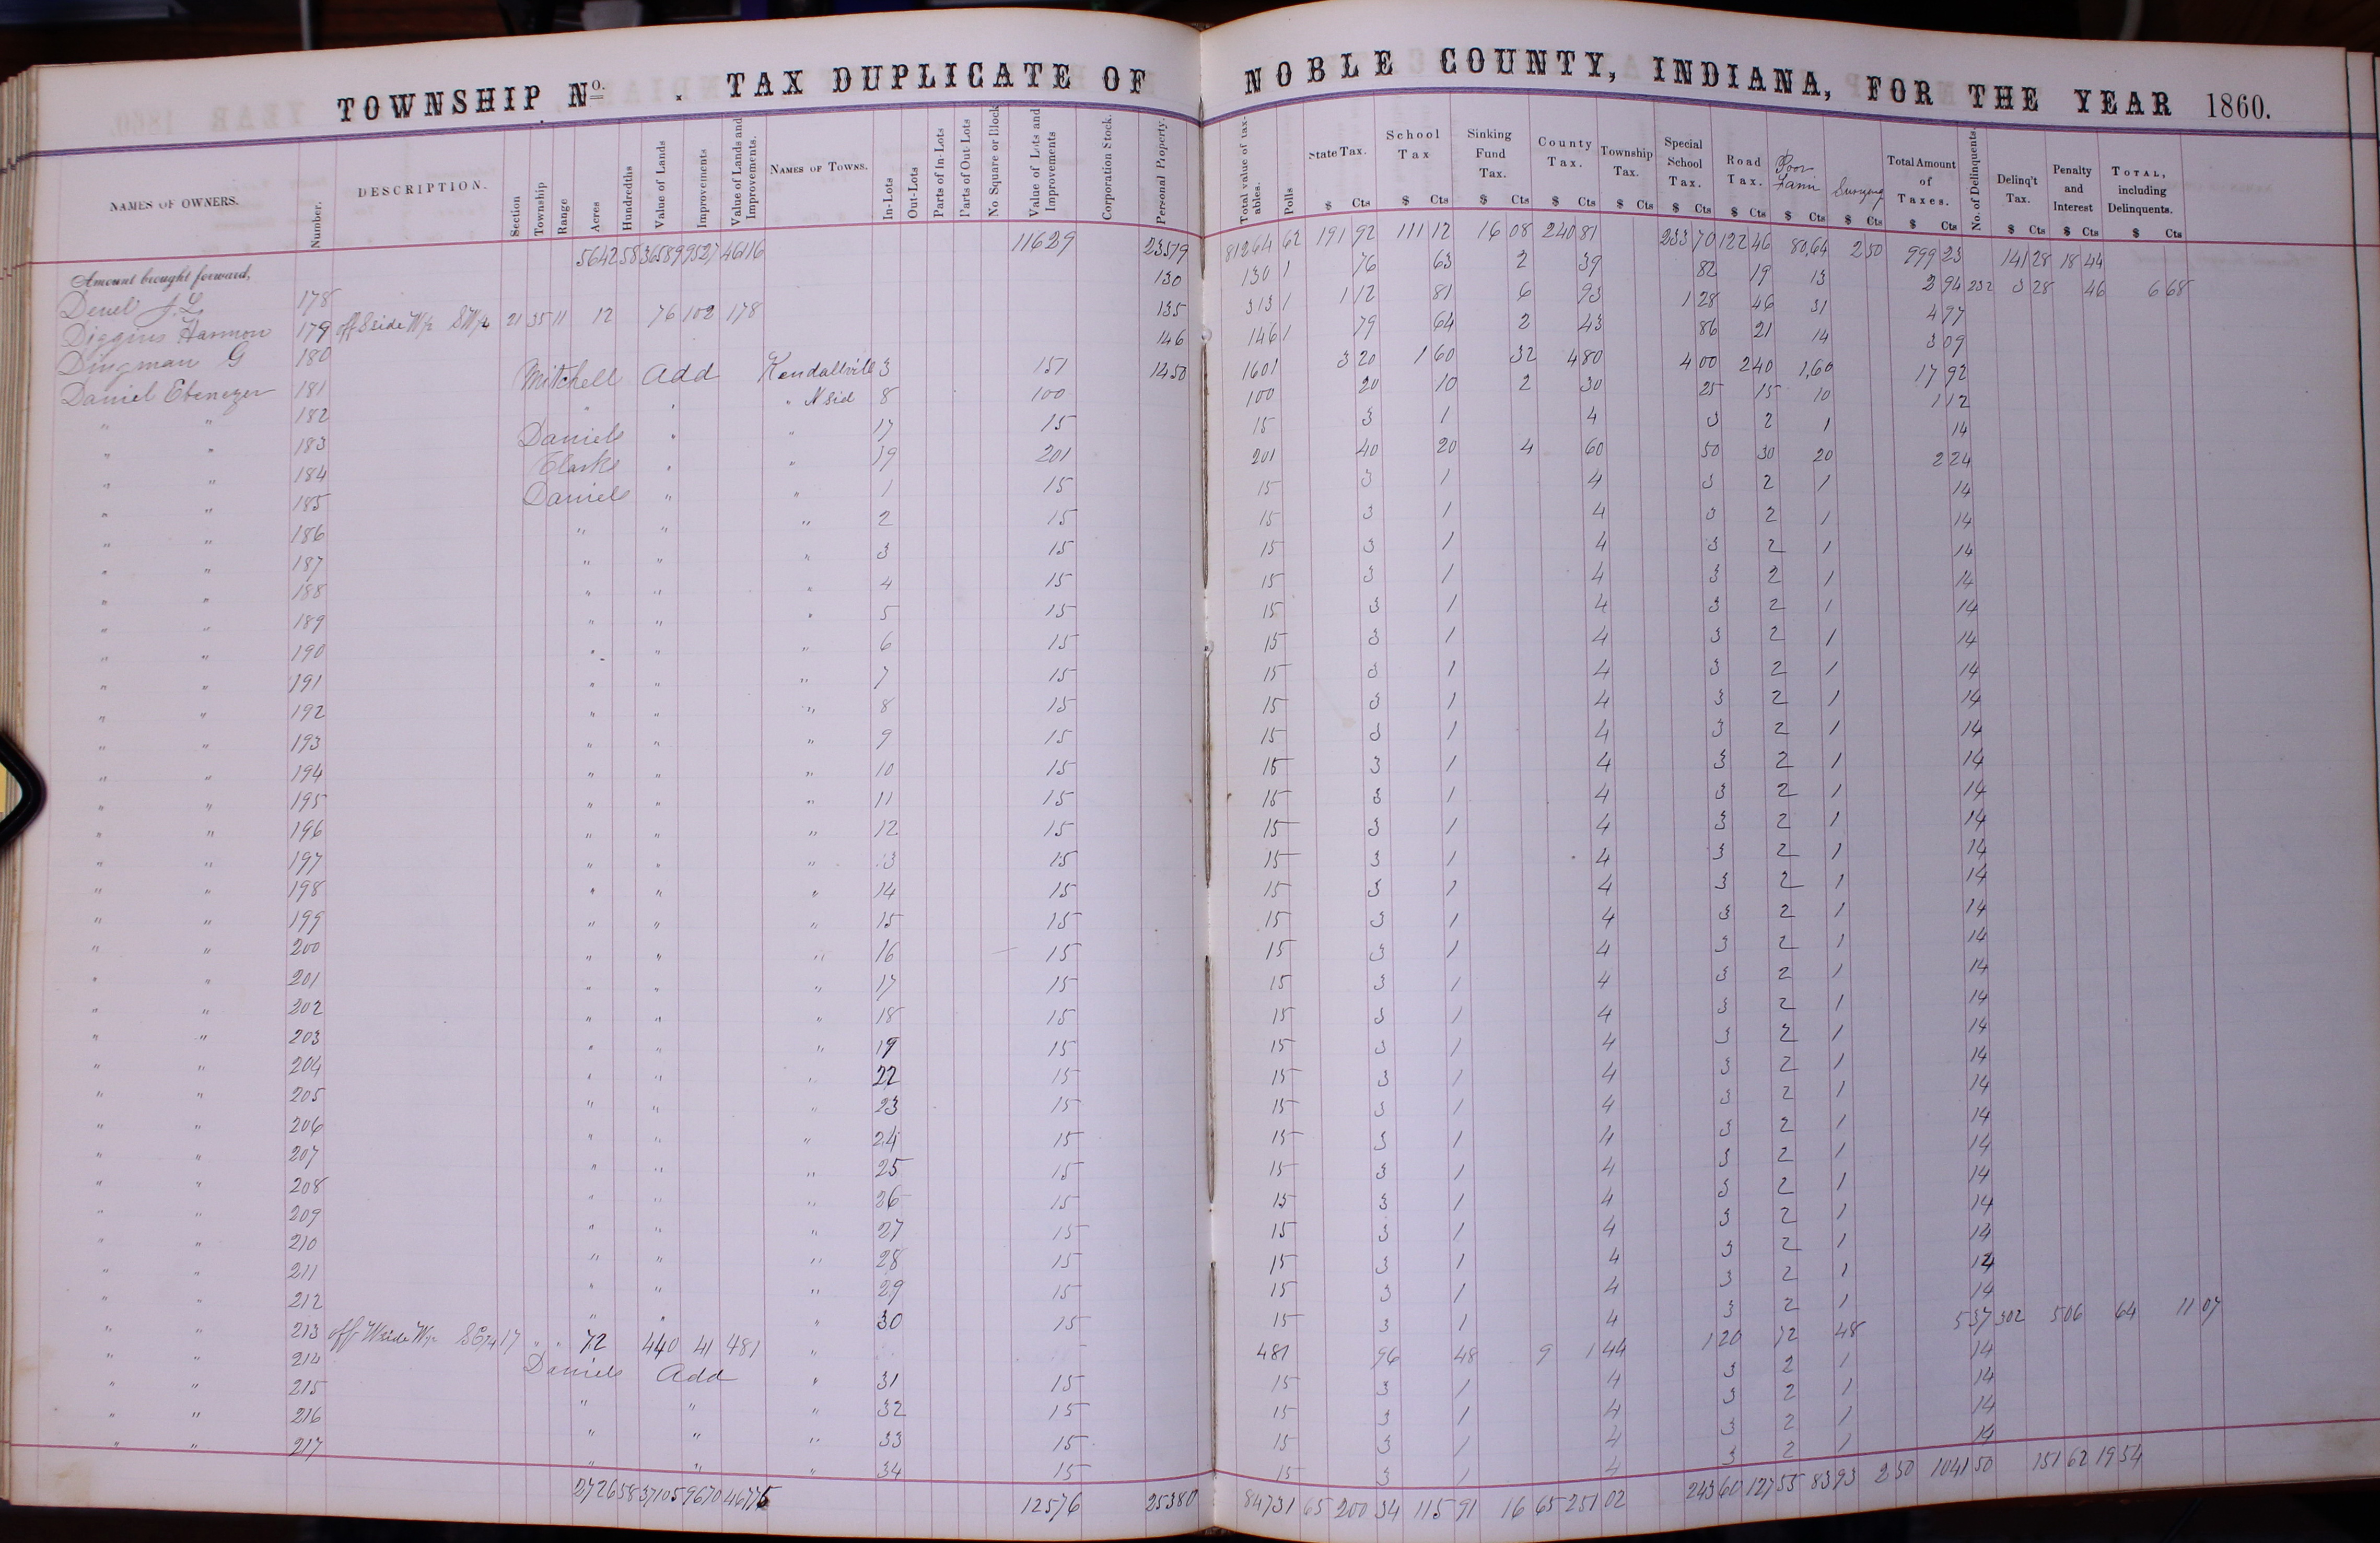 TOWNSHIP No. . TAX DUPLICATE OF NOBLE COUNTY, INDIANA, FOR THE YEAR 1860.
NAMES OF OWNERS. Number. DESCRIPTION. Section Township Range Acres Hundredths Value of Lands Improvements Value of Lands and Improvements. NAMES OF TOWNS. In-Lots Out-Lots Parts of In-Lots Parts of Out-Lots No Square or Block Value of Lots and Improvements Corporation Stock. Personal Property. Total value of taxables. Polls State Tax. School Tax Sinking Fund Tax. County Tax. Township Tax. Special School Tax. Road Tax. Poor Farm Total Amount of Taxes. No. of Delinquents. Delinq't Tax. Penalty and Interest TOTAL, including Delinquents.
$ Cts $ Cts $ Cts $ Cts $ Cts $ Cts $ Cts $ Cts $ Cts $ Cts $ Cts $ Cts $ Cts
Amount brought forward, 5642 58 36589 9527 46116 11629 23379 81264 62 191 92 111 12 16 08 240 81 233 70 122 46 80,64 2 50 999 23 141 28 18 44
178 130 130 1 76 63 2 39 82 19 13 2 94 232 3 28 46 6 68
Diggins Harmon 179 off S side W½ SW¼ 21 35 11 12 76 102 178 135 313 1 1 12 81 6 93 1 28 46 31 4 97
Dingman G 180 146 146 1 79 64 2 43 86 21 14 3 09
Daniel Ebenezer 181 Mitchell Add Kendallville 3 151 1450 1601 3 20 1 60 32 4 80 4 00 2 40 1,60 17 92
" " 182 " " " N sid 8 100 100 20 10 2 30 25 15 10 1 12
" " 183 Daniels " " 17 15 15 3 1 4 3 2 1 14
" " 184 Clarks " " 19 201 201 40 20 4 60 50 30 20 2 24
" " 185 Daniels " " 1 15 15 3 1 4 3 2 1 14
" " 186 " " " 2 15 15 3 1 4 3 2 1 14
" " 187 " " " 3 15 15 3 1 4 3 2 1 14
" " 188 " " " 4 15 15 3 1 4 3 2 1 14
" " 189 " " " 5 15 15 3 1 4 3 2 1 14
" " 190 " " " 6 15 15 3 1 4 3 2 1 14
" " 191 " " " 7 15 15 3 1 4 3 2 1 14
" " 192 " " " 8 15 15 3 1 4 3 2 1 14
" " 193 " " " 9 15 15 3 1 4 3 2 1 14
" " 194 " " " 10 15 15 3 1 4 3 2 1 14
" " 195 " " " 11 15 15 3 1 4 3 2 1 14
" " 196 " " " 12 15 15 3 1 4 3 2 1 14
" " 197 " " " 13 15 15 3 1 4 3 2 1 14
" " 198 " " " 14 15 15 3 1 4 3 2 1 14
" " 199 " " " 15 15 15 3 1 4 3 2 1 14
" " 200 " " " 16 15 15 3 1 4 3 2 1 14
" " 201 " " " 17 15 15 3 1 4 3 2 1 14
" " 202 " " " 18 15 15 3 1 4 3 2 1 14
" " 203 " " " 19 15 15 3 1 4 3 2 1 14
" " 204 " " " 22 15 15 3 1 4 3 2 1 14
" " 205 " " " 23 15 15 3 1 4 3 2 1 14
" " 206 " " " 24 15 15 3 1 4 3 2 1 14
" " 207 " " " 25 15 15 3 1 4 3 2 1 14
" " 208 " " " 26 15 15 3 1 4 3 2 1 14
" " 209 " " " 27 15 15 3 1 4 3 2 1 14
" " 210 " " " 28 15 15 3 1 4 3 2 1 14
" " 211 " " " 29 15 15 3 1 4 3 2 1 14
" " 212 " " " 30 15 15 3 1 4 3 2 1 14
" " 213 off W side W½ SE¼ 17 " " 72 440 41 481 " 481 96 48 9 1 44 1 20 72 48 5 37 302 5 06 64 11 07
" " 214 Daniels Add " 31 15 15 3 1 4 3 2 1 14
" " 215 " " " 32 15 15 3 1 4 3 2 1 14
" " 216 " " " 33 15 15 3 1 4 3 2 1 14
" " 217 " " " 34 15 15 3 1 4 3 2 1 14
2726 58 37105 9670 46775 12576 25380 84731 65 200 34 115 91 16 65 251 02 243 60 127 55 83 93 2 50 1041 50 151 62 19 54